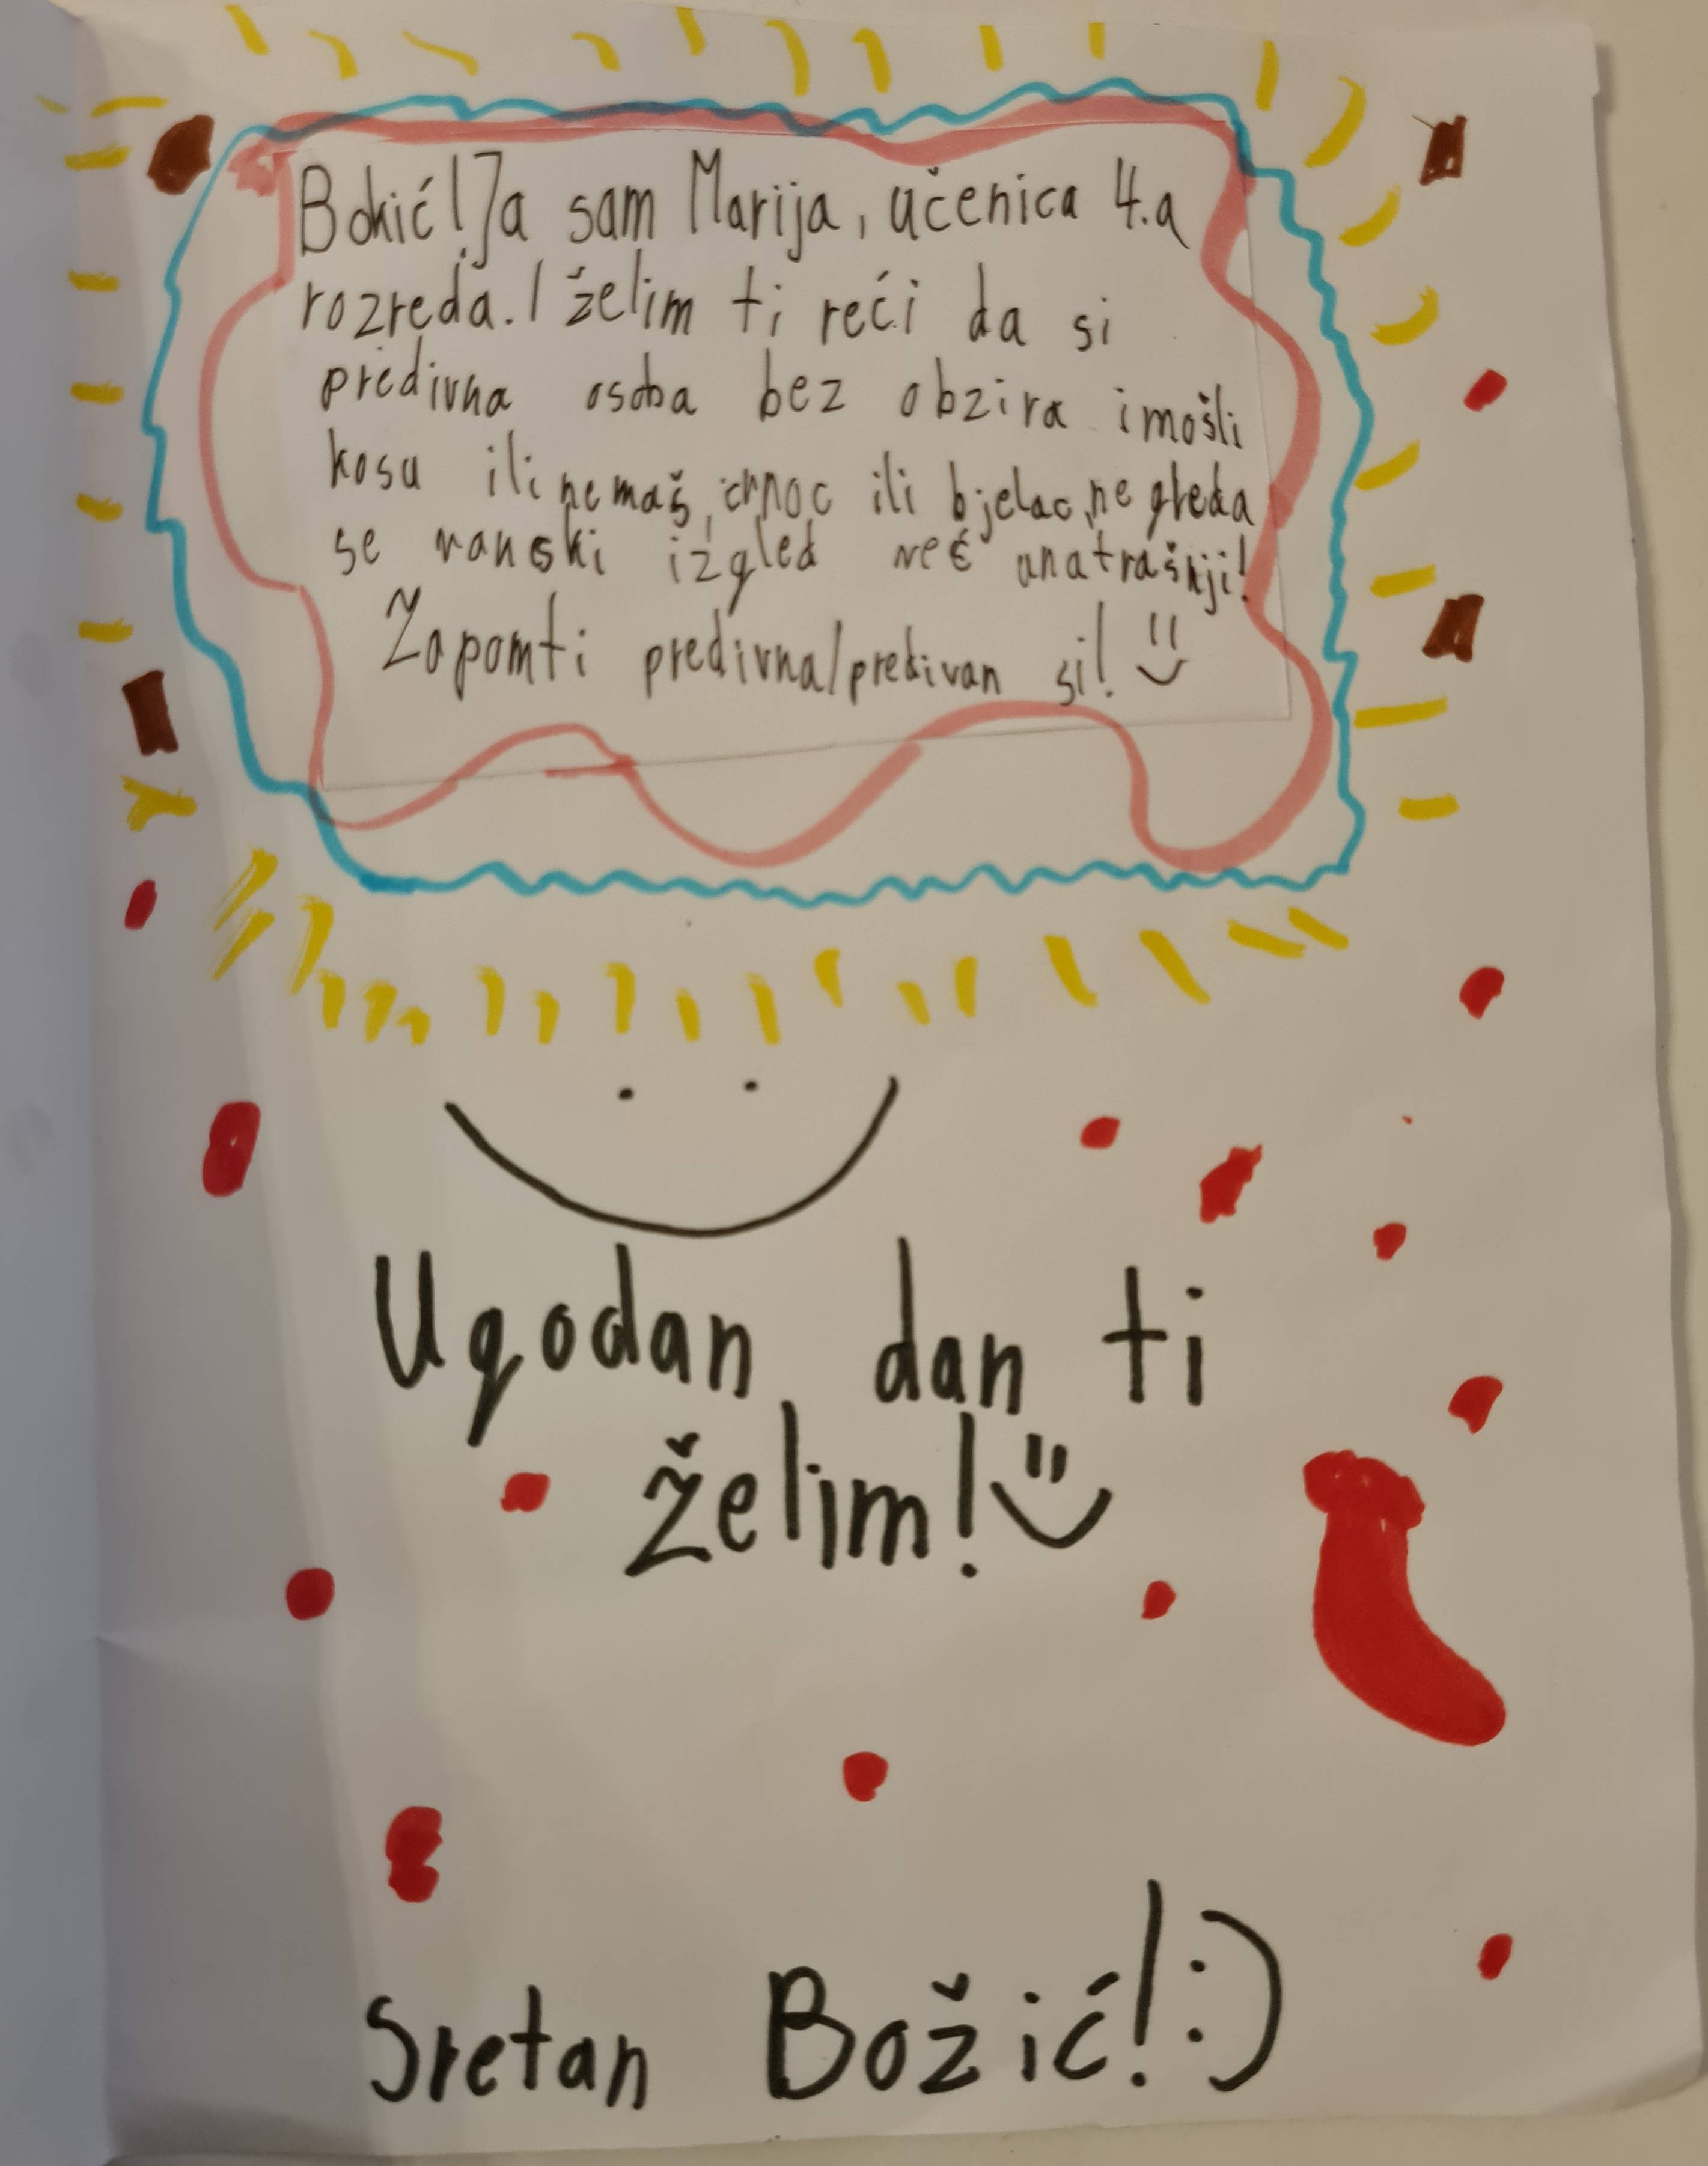 Bokić! Ja sam Marija, učenica 4.a
rozreda. I želim ti reći da si
predivna osoba bez obzira imošli
kosu ili nemaš, crnac ili bjelac, ne gleda
se vanski izgled neć unatrašnji!
Zapomti predivna/predivan si! :)
Ugodan dan ti
želim! :)
Sretan Božić! :)